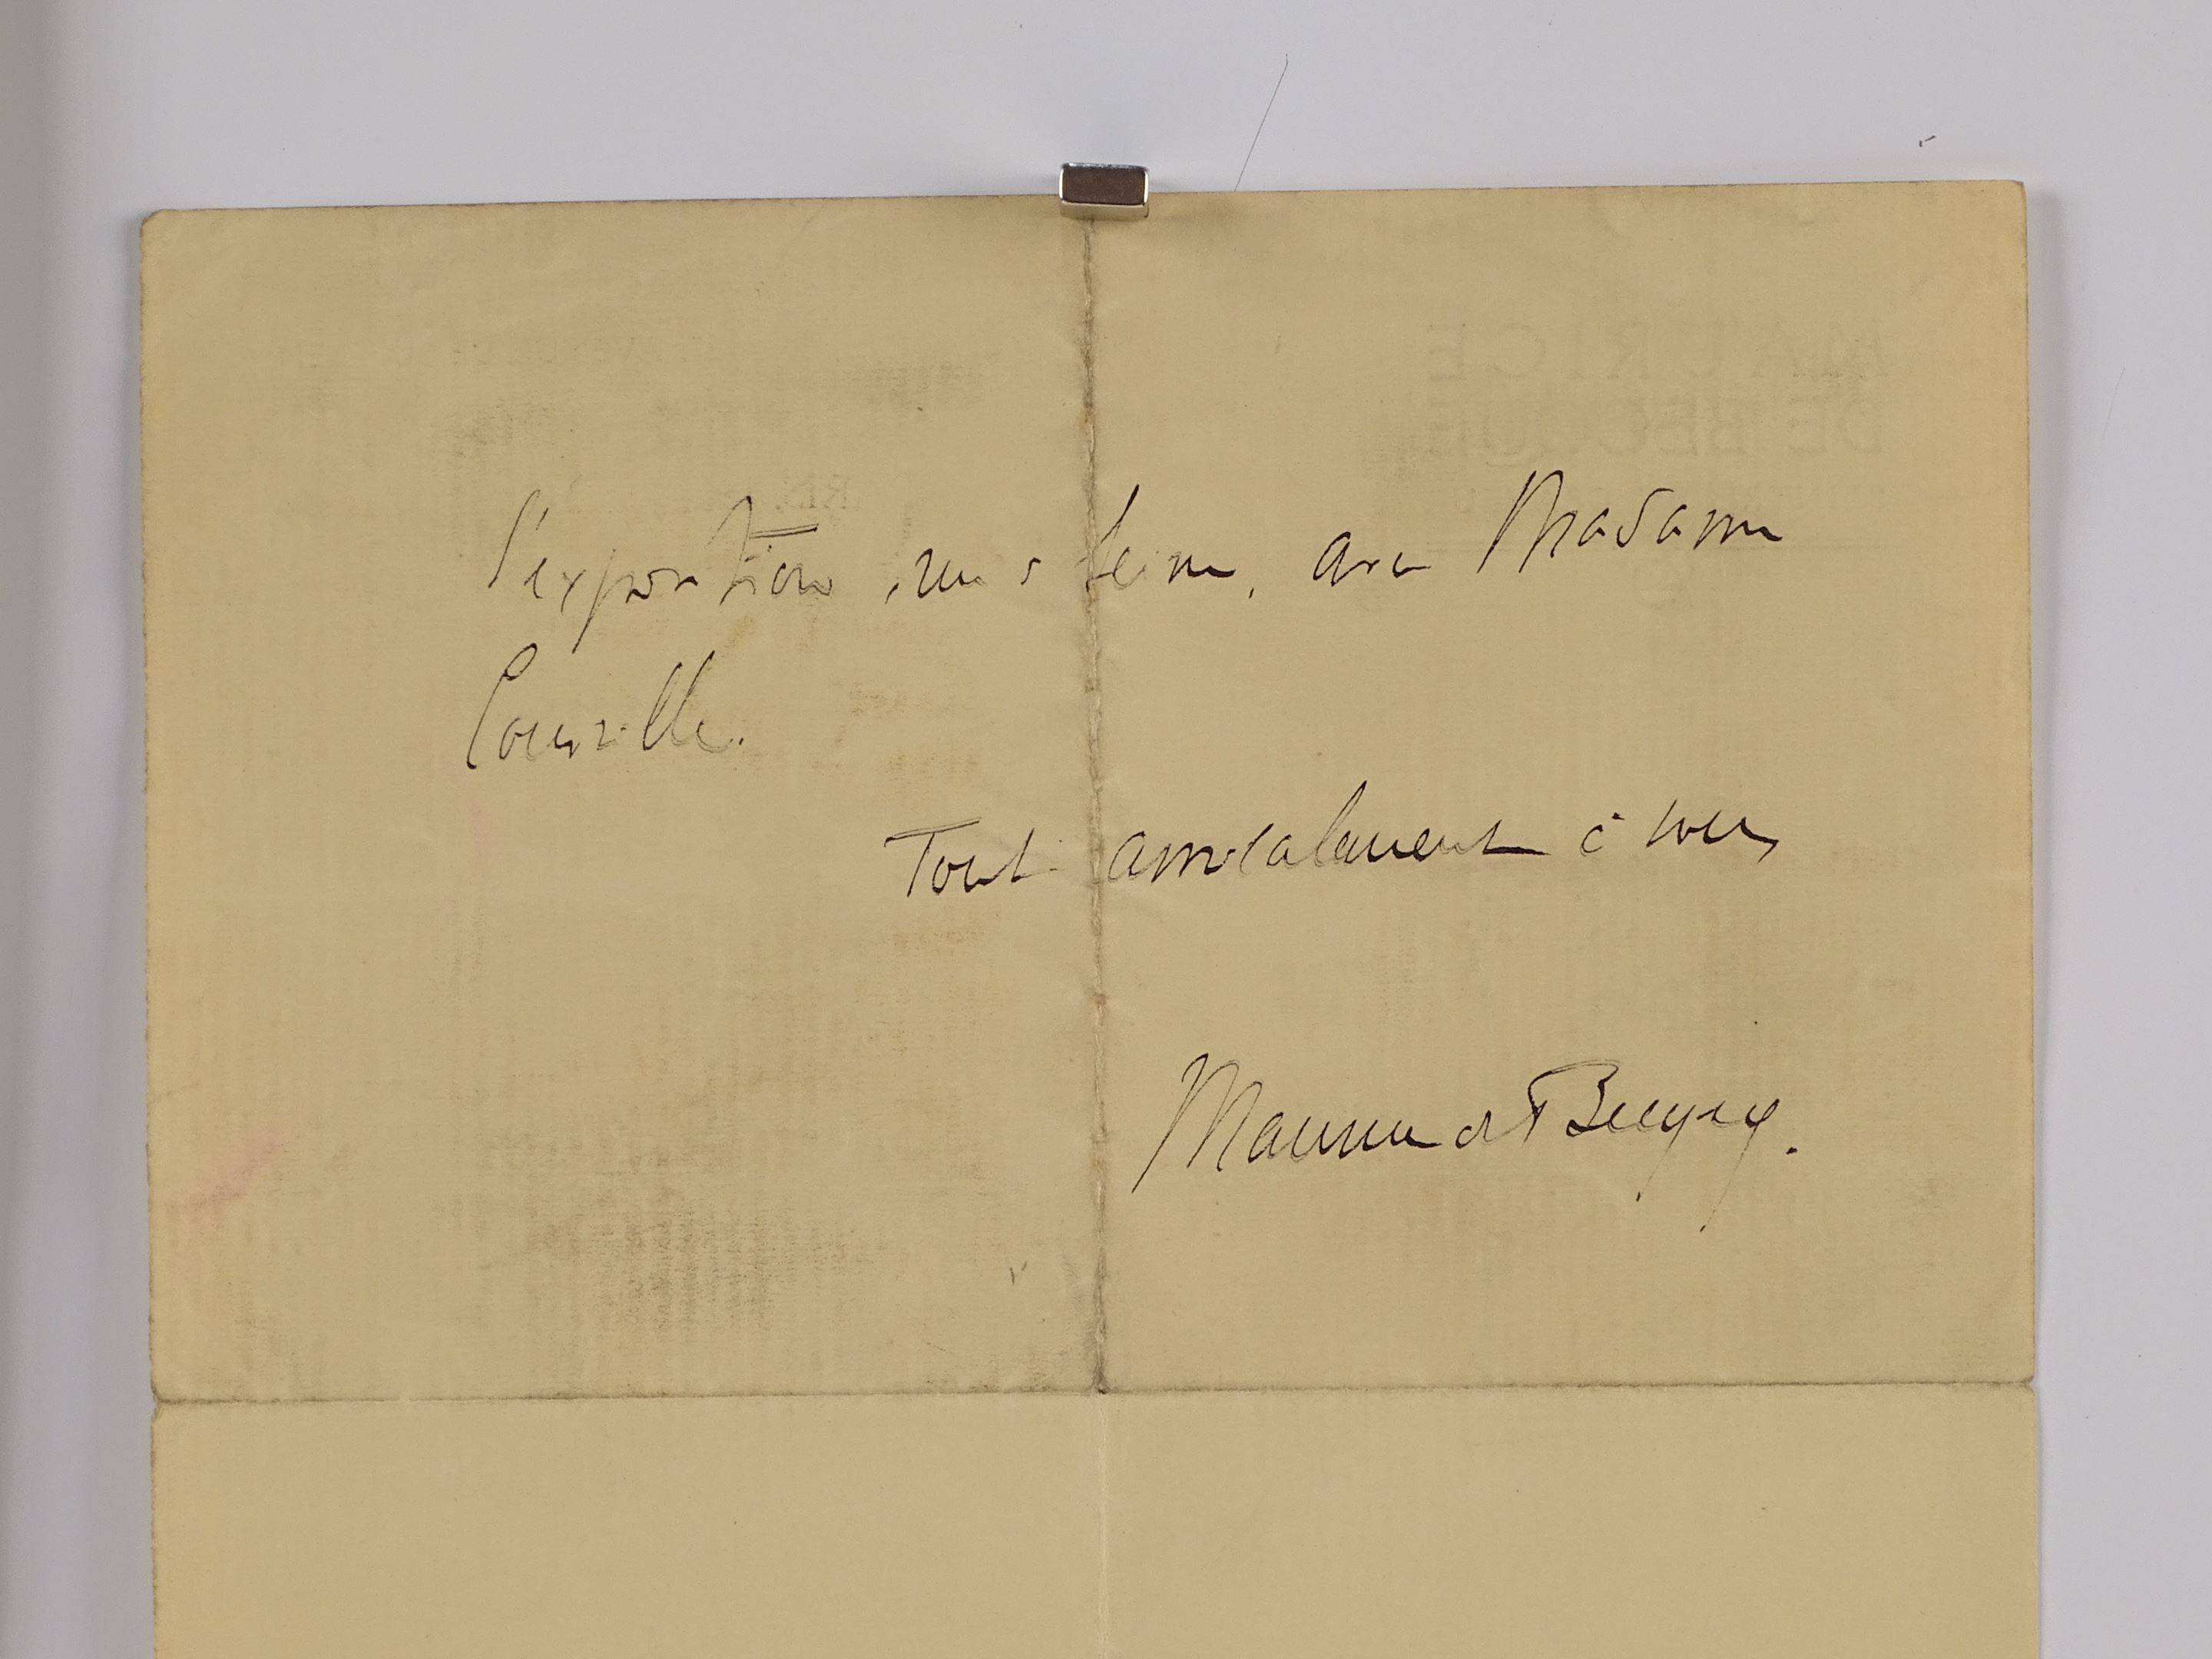 l'exposition, avec Madame
Courville.
Tout amicalement à vous
Maurice de Becque.